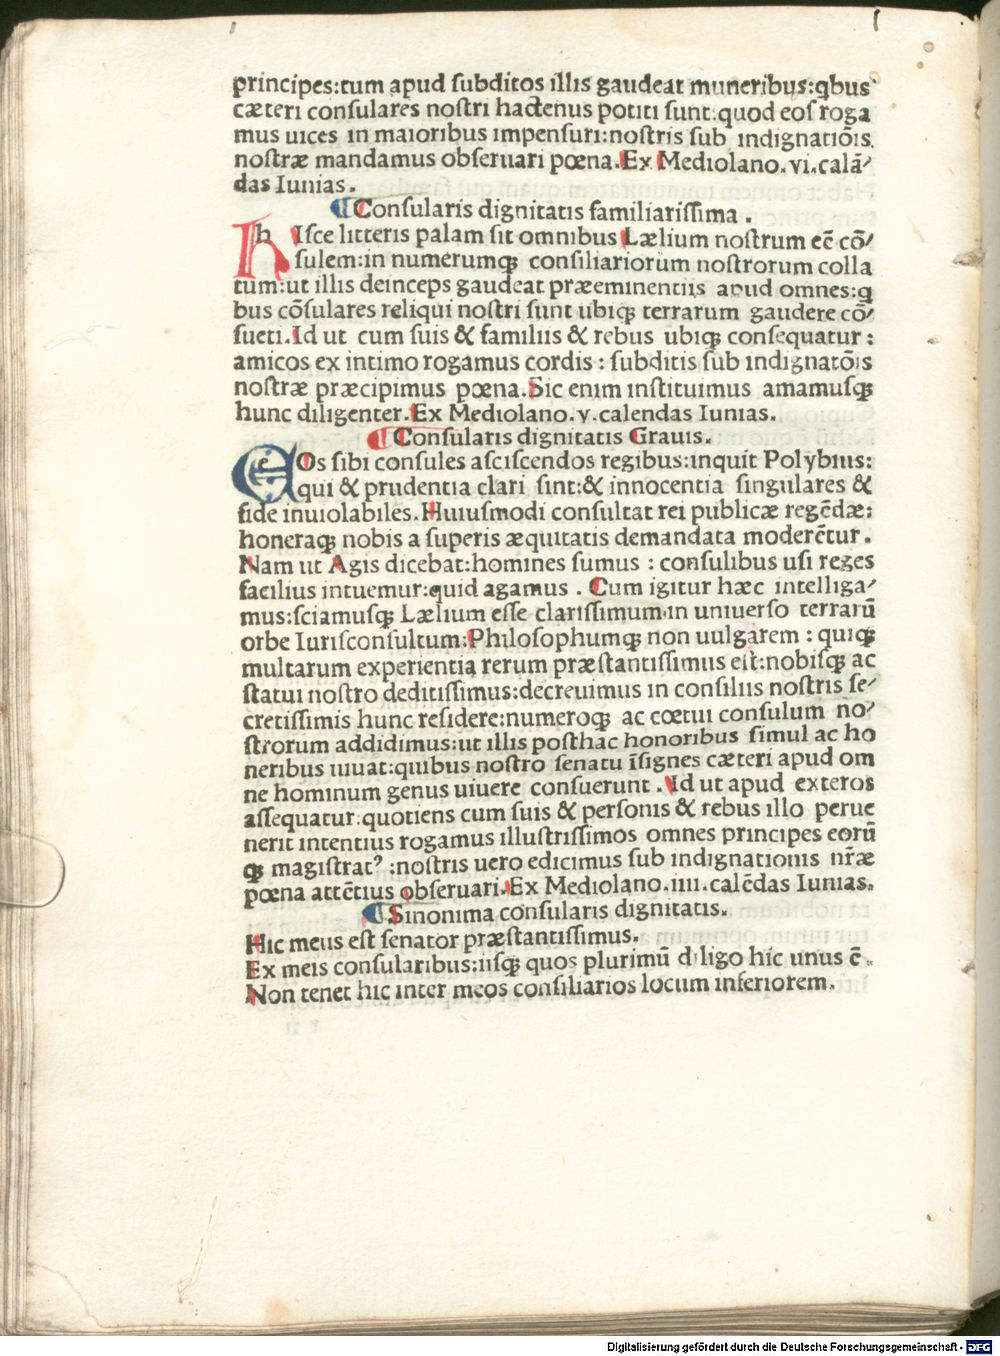 principes:tum apud subditos illis gaudeat muneribus:qbus
cæteri consulares nostri hactenus potiti sunt:quod eos roga
mus uices in maioribus impensuri:nostris sub indignatiōis
nostræ mandamus obseruari pœna.Ex Mediolano.vi.calā/
das Iunias.
¶Consularis dignitatis familiarissima.
hIsce litteris palam sit omnibus Lælium nostrum eē cō/
sulem:in numerumqꝫ consiliariorum nostrorum colla
tum:ut illis deinceps gaudeat præeminentiis apud omnes:q
bus cōsulares reliqui nostri sunt ubiqꝫ terrarum gaudere cō/
sueti.Id ut cum suis & familiis & rebus ubiqꝫ consequatur:
amicos ex intimo rogamus cordis:subditis sub indignatōis
nostræ præcipimus pœna.Sic enim instituimus amamusqꝫ
hunc diligenter.Ex Mediolano.v.calendas Iunias.
¶Consularis dignitatis Grauis.
eOs sibi consules asciscendos regibus:inquit Polybius:
qui & prudentia clari sint:& innocentia singulares &
fide inuiolabiles.Huiusmodi consultat rei publicæ regēdæ:
honeraqꝫ nobis a superis æquitatis demandata moderētur.
Nam ut Agis dicebat:homines sumus:consulibus usi reges
facilius intuemur:quid agamus.Cum igitur hæc intelliga/
mus:sciamusqꝫ Lælium esse clarissimum in uniuerso terrarū
orbe Iurisconsultum:Philosophumqꝫ non uulgarem:quiqꝫ
multarum experientia rerum præstantissimus est:nobisqꝫ ac
statui nostro deditissimus:decreuimus in consiliis nostris se/
cretissimis hunc residere:numeroqꝫ ac cœtui consulum no/
strorum addidimus:ut illis posthac honoribus simul ac ho
neribus uiuat:quibus nostro senatu īsignes cæteri apud om
ne hominum genus uiuere consuerunt.Id ut apud exteros
assequatur:quotiens cum suis & personis & rebus illo perue
nerit intentius rogamus illustrissimos omnes principes eorū
qꝫ magistratꝰ:nostris uero edicimus sub indignationis nr̄æ
pœna attētius obseruari.Ex Mediolano.iiii.calēdas Iunias.
¶Sinonima consularis dignitatis.
Hic meus est senator præstantissimus.
Ex meis consularibus:iisqꝫ quos plurimū diligo hic unus ē.
Non tenet hic inter meos consiliarios locum inferiorem.
Digitalisierung gefördert durch die Deutsche Forschungsgemeinschaft - DFG